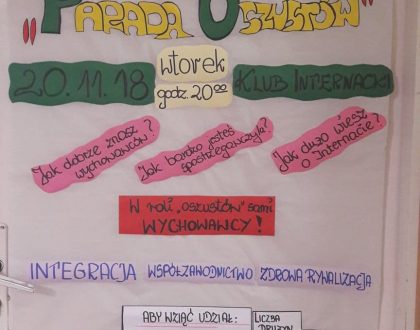 „PARADA OSZUSTÓW"
20.11.18
wtorek
godz. 20⁰⁰
KLUB INTERNACKI
Jak dobrze znasz
wychowawców?
Jak bardzo jesteś
spostrzegawczy/a?
Jak dużo wiesz
o Internacie?
W roli „oszustów" sami
WYCHOWAWCY!
INTEGRACJA WSPÓŁZAWODNICTWO ZDROWA RYWALIZACJA
ABY WZIĄĆ UDZIAŁ:
LICZBA
DRUŻYN